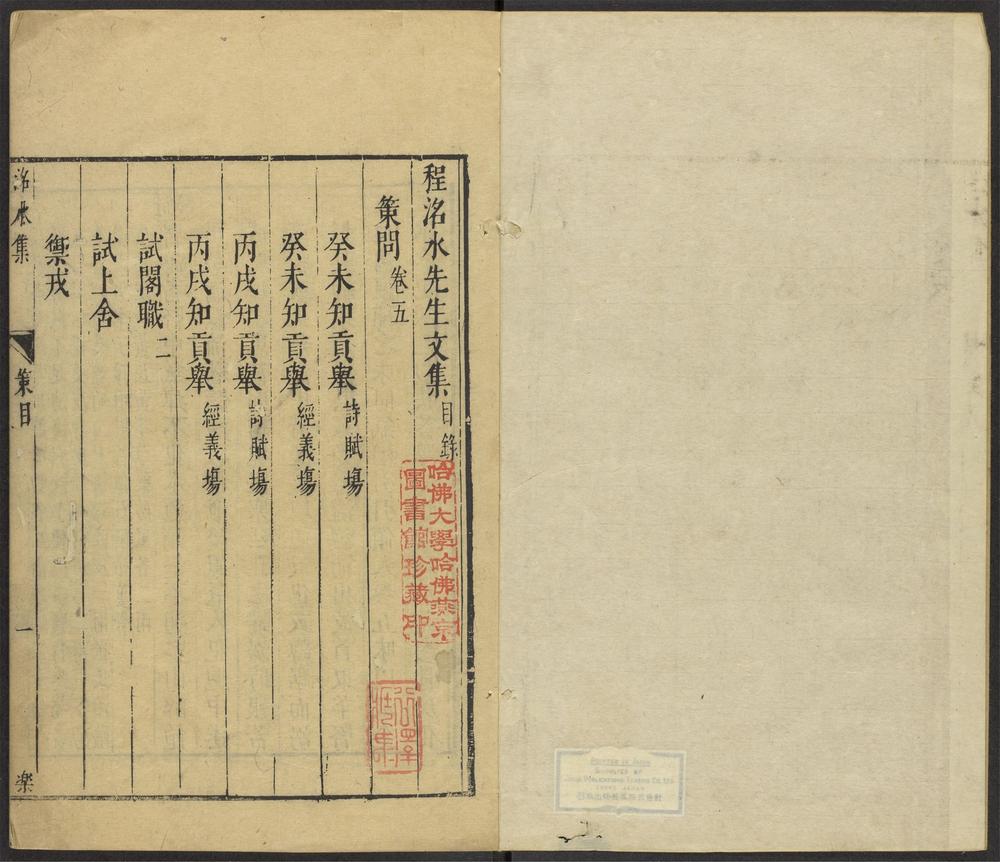 程洺水先生文集目錄
策問 卷五
癸未知貢舉 詩賦場
癸未知貢舉 經義場
丙戌知貢舉 詩賦場
丙戌知貢舉 經義場
試閣職 二
試上舍
禦戎
洺水集 策目 一 樂
哈佛大學哈佛燕京
圖書館珍藏印